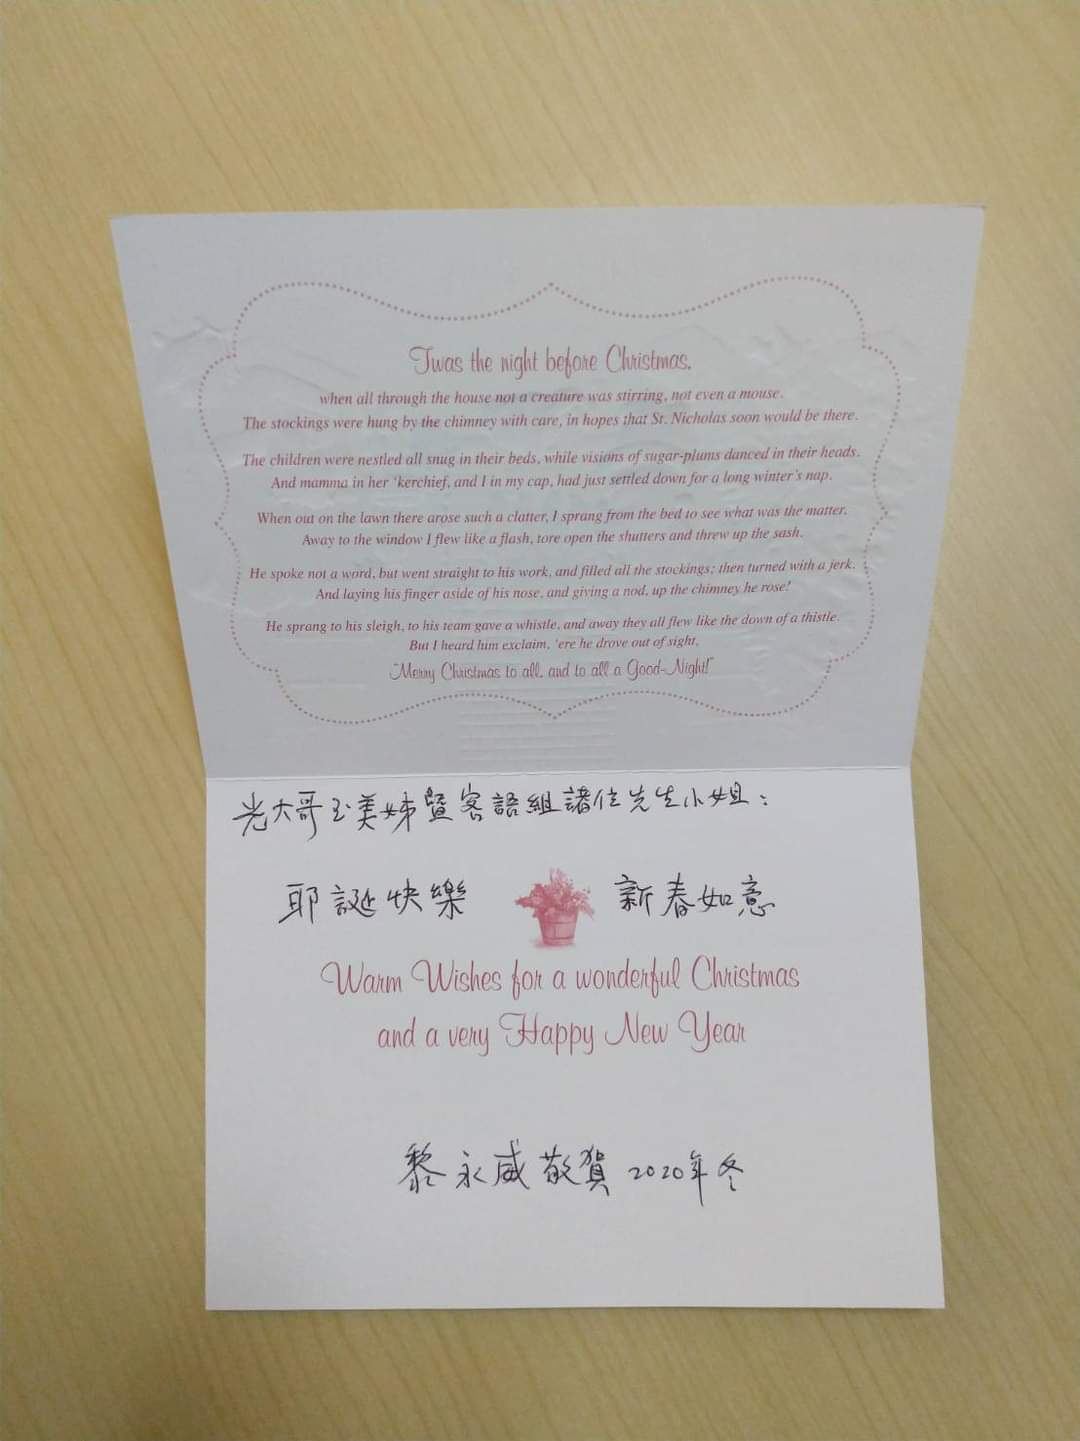 'Twas the night before Christmas,
when all through the house not a creature was stirring, not even a mouse.
The stockings were hung by the chimney with care, in hopes that St. Nicholas soon would be there.
The children were nestled all snug in their beds, while visions of sugar-plums danced in their heads.
And mamma in her 'kerchief, and I in my cap, had just settled down for a long winter's nap.
When out on the lawn there arose such a clatter, I sprang from the bed to see what was the matter.
Away to the window I flew like a flash, tore open the shutters and threw up the sash.
He spoke not a word, but went straight to his work, and filled all the stockings; then turned with a jerk.
And laying his finger aside of his nose, and giving a nod, up the chimney he rose!
He sprang to his sleigh, to his team gave a whistle, and away they all flew like the down of a thistle.
But I heard him exclaim, 'ere he drove out of sight,
"Merry Christmas to all, and to all a Good-Night!"
光大哥玉美姊暨客語組諸位先生小姐：
耶誕快樂 新春如意
Warm Wishes for a wonderful Christmas
and a very Happy New Year
黎永威敬賀 2020年冬